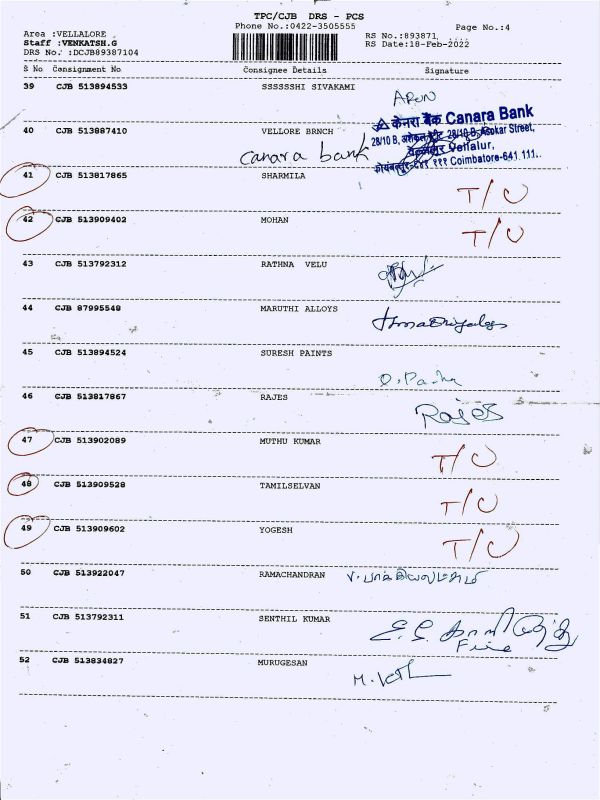 TPC/CJB DRS - PCS
Phone No.:0422-3505555
Page No.:4
Area :VELLALORE
RS No.:893871
Staff :VENKATSH.G
RS Date:18-Feb-2022
DRS No. :DCJB89387104
S No Consignment No Consignee Details Signature
39 CJB 513894533 SSSSSSHI SIVAKAMI
ARUN
केनरा बैंक Canara Bank
40 CJB 513887410 VELLORE BRNCH
28/10 B, 28/10 B, Asokar Street,
canara bank
Vellalur,
Coimbatore-641 111.
41 CJB 513817865 SHARMILA
T/C
42 CJB 513909402 MOHAN
T/C
43 CJB 513792312 RATHNA VELU
44 CJB 87995548 MARUTHI ALLOYS
45 CJB 513894524 SURESH PAINTS
46 CJB 513817867 RAJES
Rajes
47 CJB 513902089 MUTHU KUMAR
T/C
48 CJB 513909528 TAMILSELVAN
T/C
49 CJB 513909602 YOGESH
T/C
50 CJB 513922047 RAMACHANDRAN
51 CJB 513792311 SENTHIL KUMAR
52 CJB 513834827 MURUGESAN